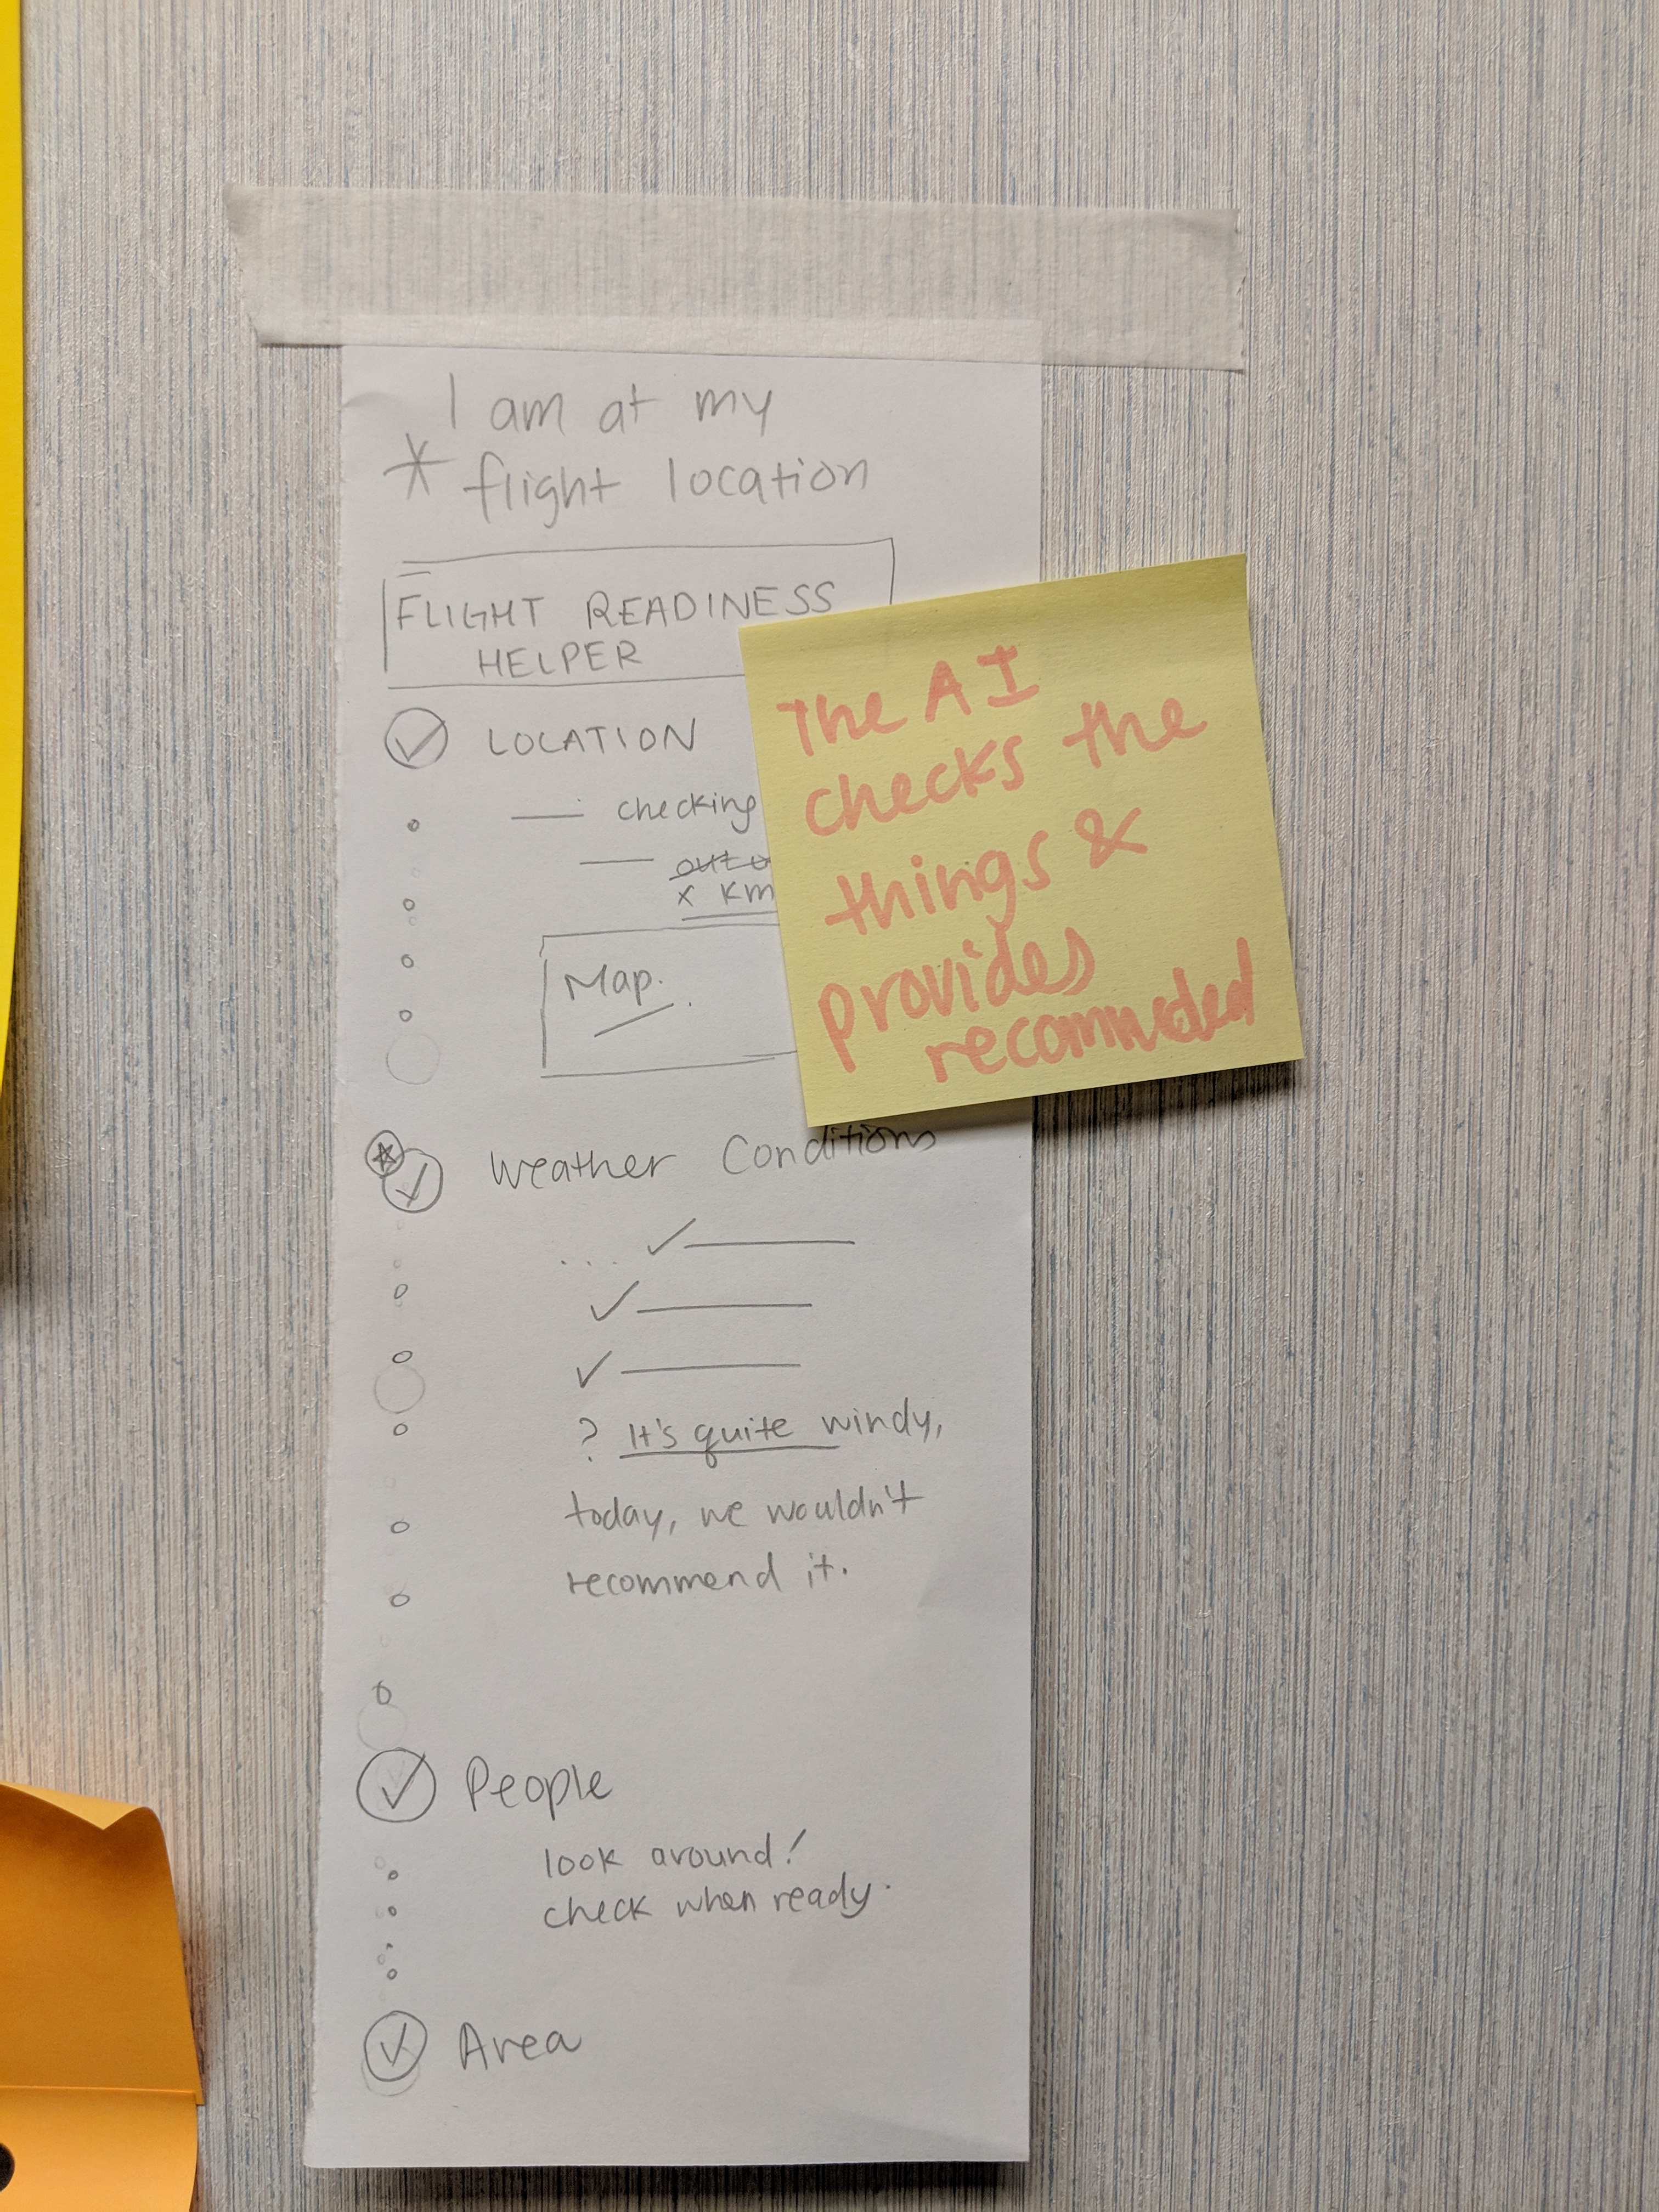 I am at my
* flight location
FLIGHT READINESS
HELPER
LOCATION
checking
x km
Map.
Weather Conditions
? It's quite windy,
today, we wouldn't
recommend it.
People
look around!
check when ready.
Area
The AI
checks the
things &
provides